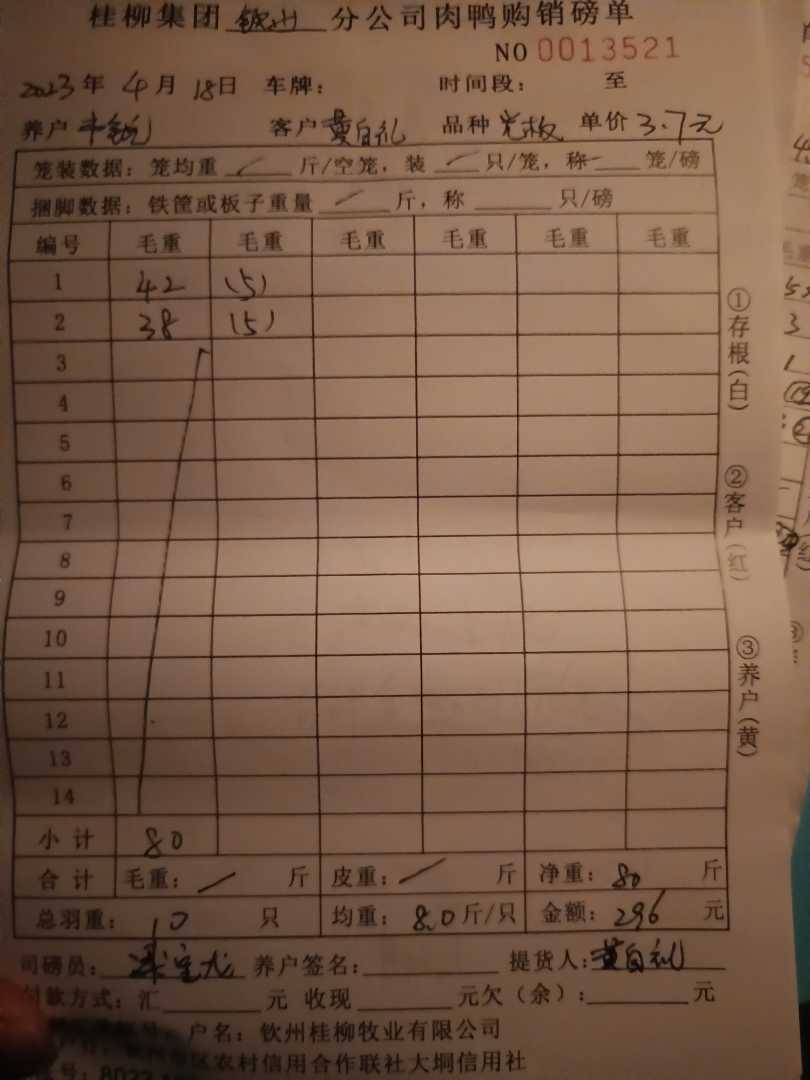 桂柳集团 钦州 分公司肉鸭购销磅单
NO 0013521
2023年 4月 18日 车牌： 时间段： 至
养户 客户 黄自礼 品种 光板 单价 3.7元
笼装数据：笼均重 / 斤/空笼，装 / 只/笼，称 — 笼/磅
捆脚数据：铁筐或板子重量 / 斤，称 只/磅
编号 毛重 毛重 毛重 毛重 毛重 毛重
1 42 (5)
2 38 (5)
3
4
5
6
7
8
9
10
11
12
13
14
小计 80
合计 毛重： / 斤 皮重： / 斤 净重： 80 斤
总羽重： 10 只 均重： 8.0 斤/只 金额： 296 元
司磅员： 养户签名： 提货人： 黄自礼
付款方式：汇 元 收现 元欠（余）： 元
户名：钦州桂柳牧业有限公司
区农村信用合作联社大垌信用社
号：8022
①存根(白)
②客户(红)
③养户(黄)